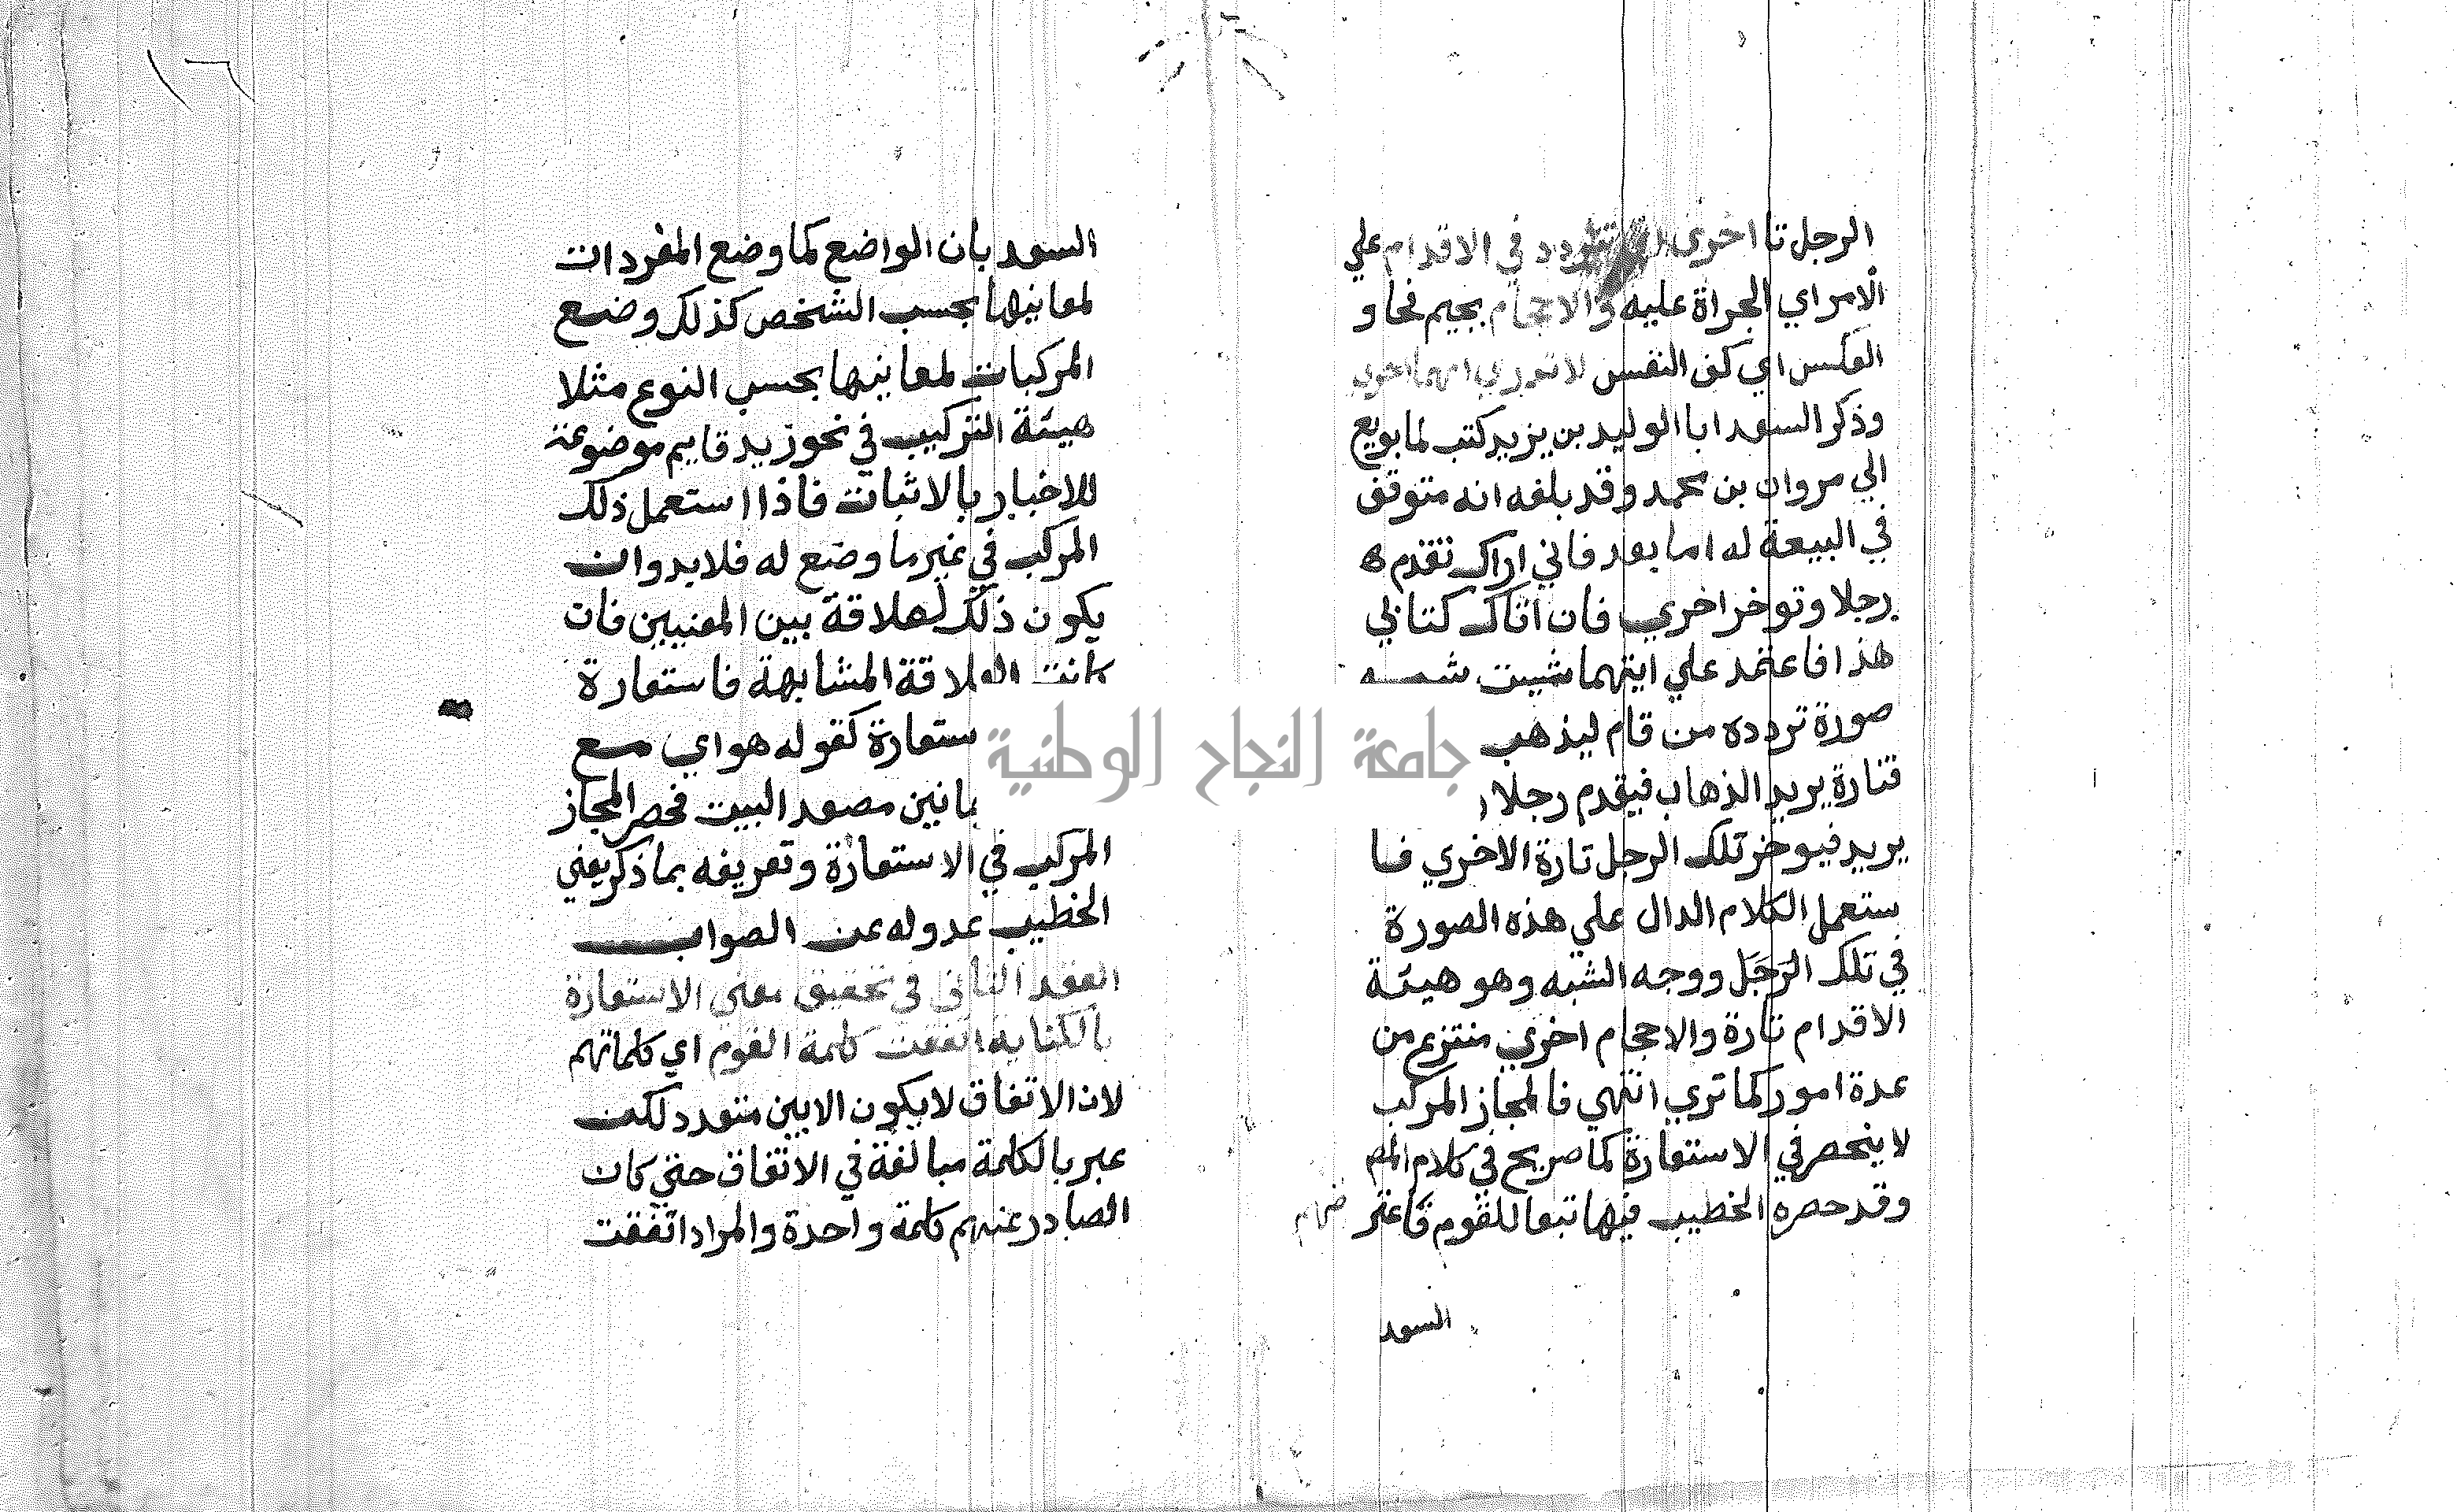 الرجل تا اخري تتردد في الاقدام علي
الامر اي الجراة عليه والاحجام بجيم فحا و
العكس اي كف النفس لا تدري ايهما احري
وذكر السعد ابا الوليد بن يزيد كتب لما بويع
الي مروان بن محمد وقد بلغه انه متوقف
في البيعة له اما بعد فاني اراك تقدم
رجلا وتوخر اخري فان اتاك كتابي
هذا فاعتمد علي ايتهما شيت شبه
صورة تردده من قام ليذهب
فتارة يريد الذهاب فيقدم رجلا
يريد فيوخر تلك الرجل تارة الاخري فا
ستعمل الكلام الدال علي هذه الصورة
في تلك الرجل ووجه الشبه وهو هيئة
الاقدام تارة والاحجام اخري منتزع من
عدة امور كما تري انتهي فالمجاز المركب
لا ينحصر في الاستعارة كما صريح في كلام المص
وقد حصره الخطيب فيها تبعا للقوم فاعتر
السعد
السعد بان الواضع كما وضع المفردات
لمعانيها بحسب الشخص كذلك وضع
المركبات لمعانيها بحسب النوع مثلا
هيئة التركيب في نحو زيد قايم موضوعة
للاخبار بالاثبات فاذا استعمل ذلك
المركب في غير ما وضع له فلابد وان
يكون ذلك لعلاقة بين المعنيين فان
كانت العلاقة المشابهة فاستعارة
ستعارة كقوله هواي مع
مانين مصعد البيت فحصر المجاز
المركب في الاستعارة وتعريفه بما ذكر يعني
الخطيب عدوله عن الصواب
العقد الثاني في تحقيق معني الاستعارة
بالكناية اتفقت كلمة القوم اي كلماتهم
لان الاتفاق لا يكون الا بين متعدد لكن
عبر بالكلمة مبالغة في الاتفاق حتي كان
الصادر عنهم كلمة واحدة والمراد اتفقت
جامعة النجاح الوطنية